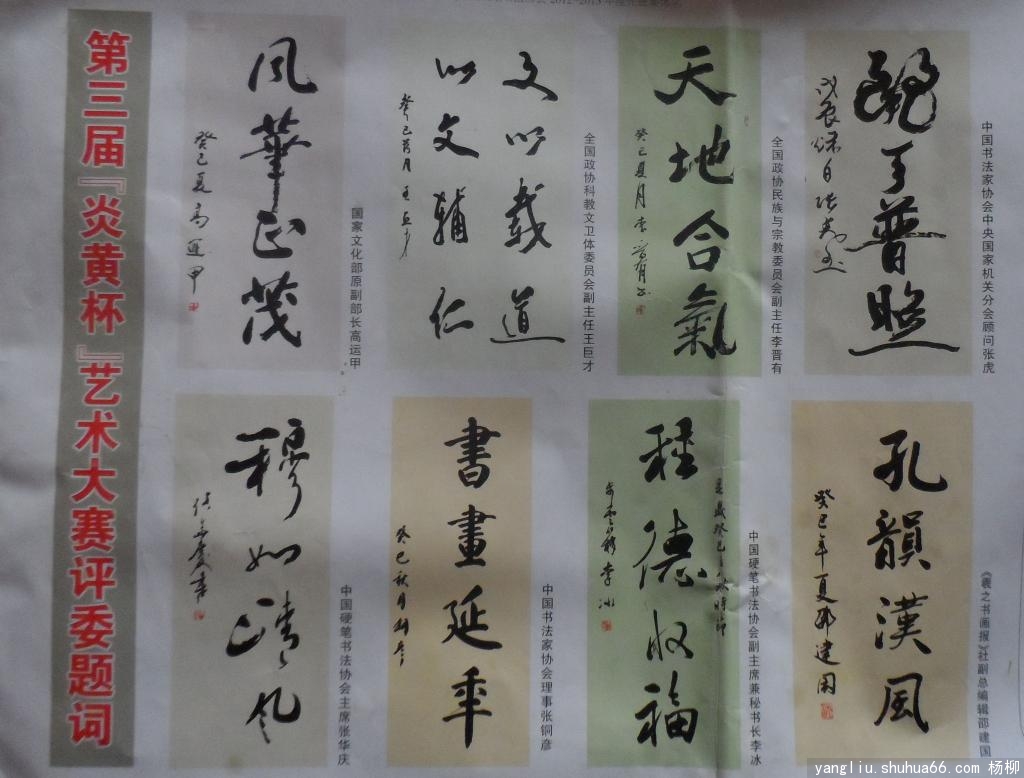 第三届『炎黄杯』艺术大赛评委题词
中国书法家协会中央国家机关分会顾问张虎
普照
全国政协民族与宗教委员会副主任李晋有
天地合氣
癸巳夏月李晋有书
全国政协科教文卫体委员会副主任王巨才
文以载道
以文辅仁
国家文化部原副部长高运甲
风華正茂
癸巳夏高运甲
《羲之书画报》社副总编辑邵建国
孔韻漢風
癸巳年夏邵建国
中国硬笔书法协会副主席兼秘书长李冰
种德收福
李冰
中国书法家协会理事张铜彦
書畫延年
癸巳秋月
中国硬笔书法协会主席张华庆
穆如清风
yangliu.shuhua66.com 杨柳